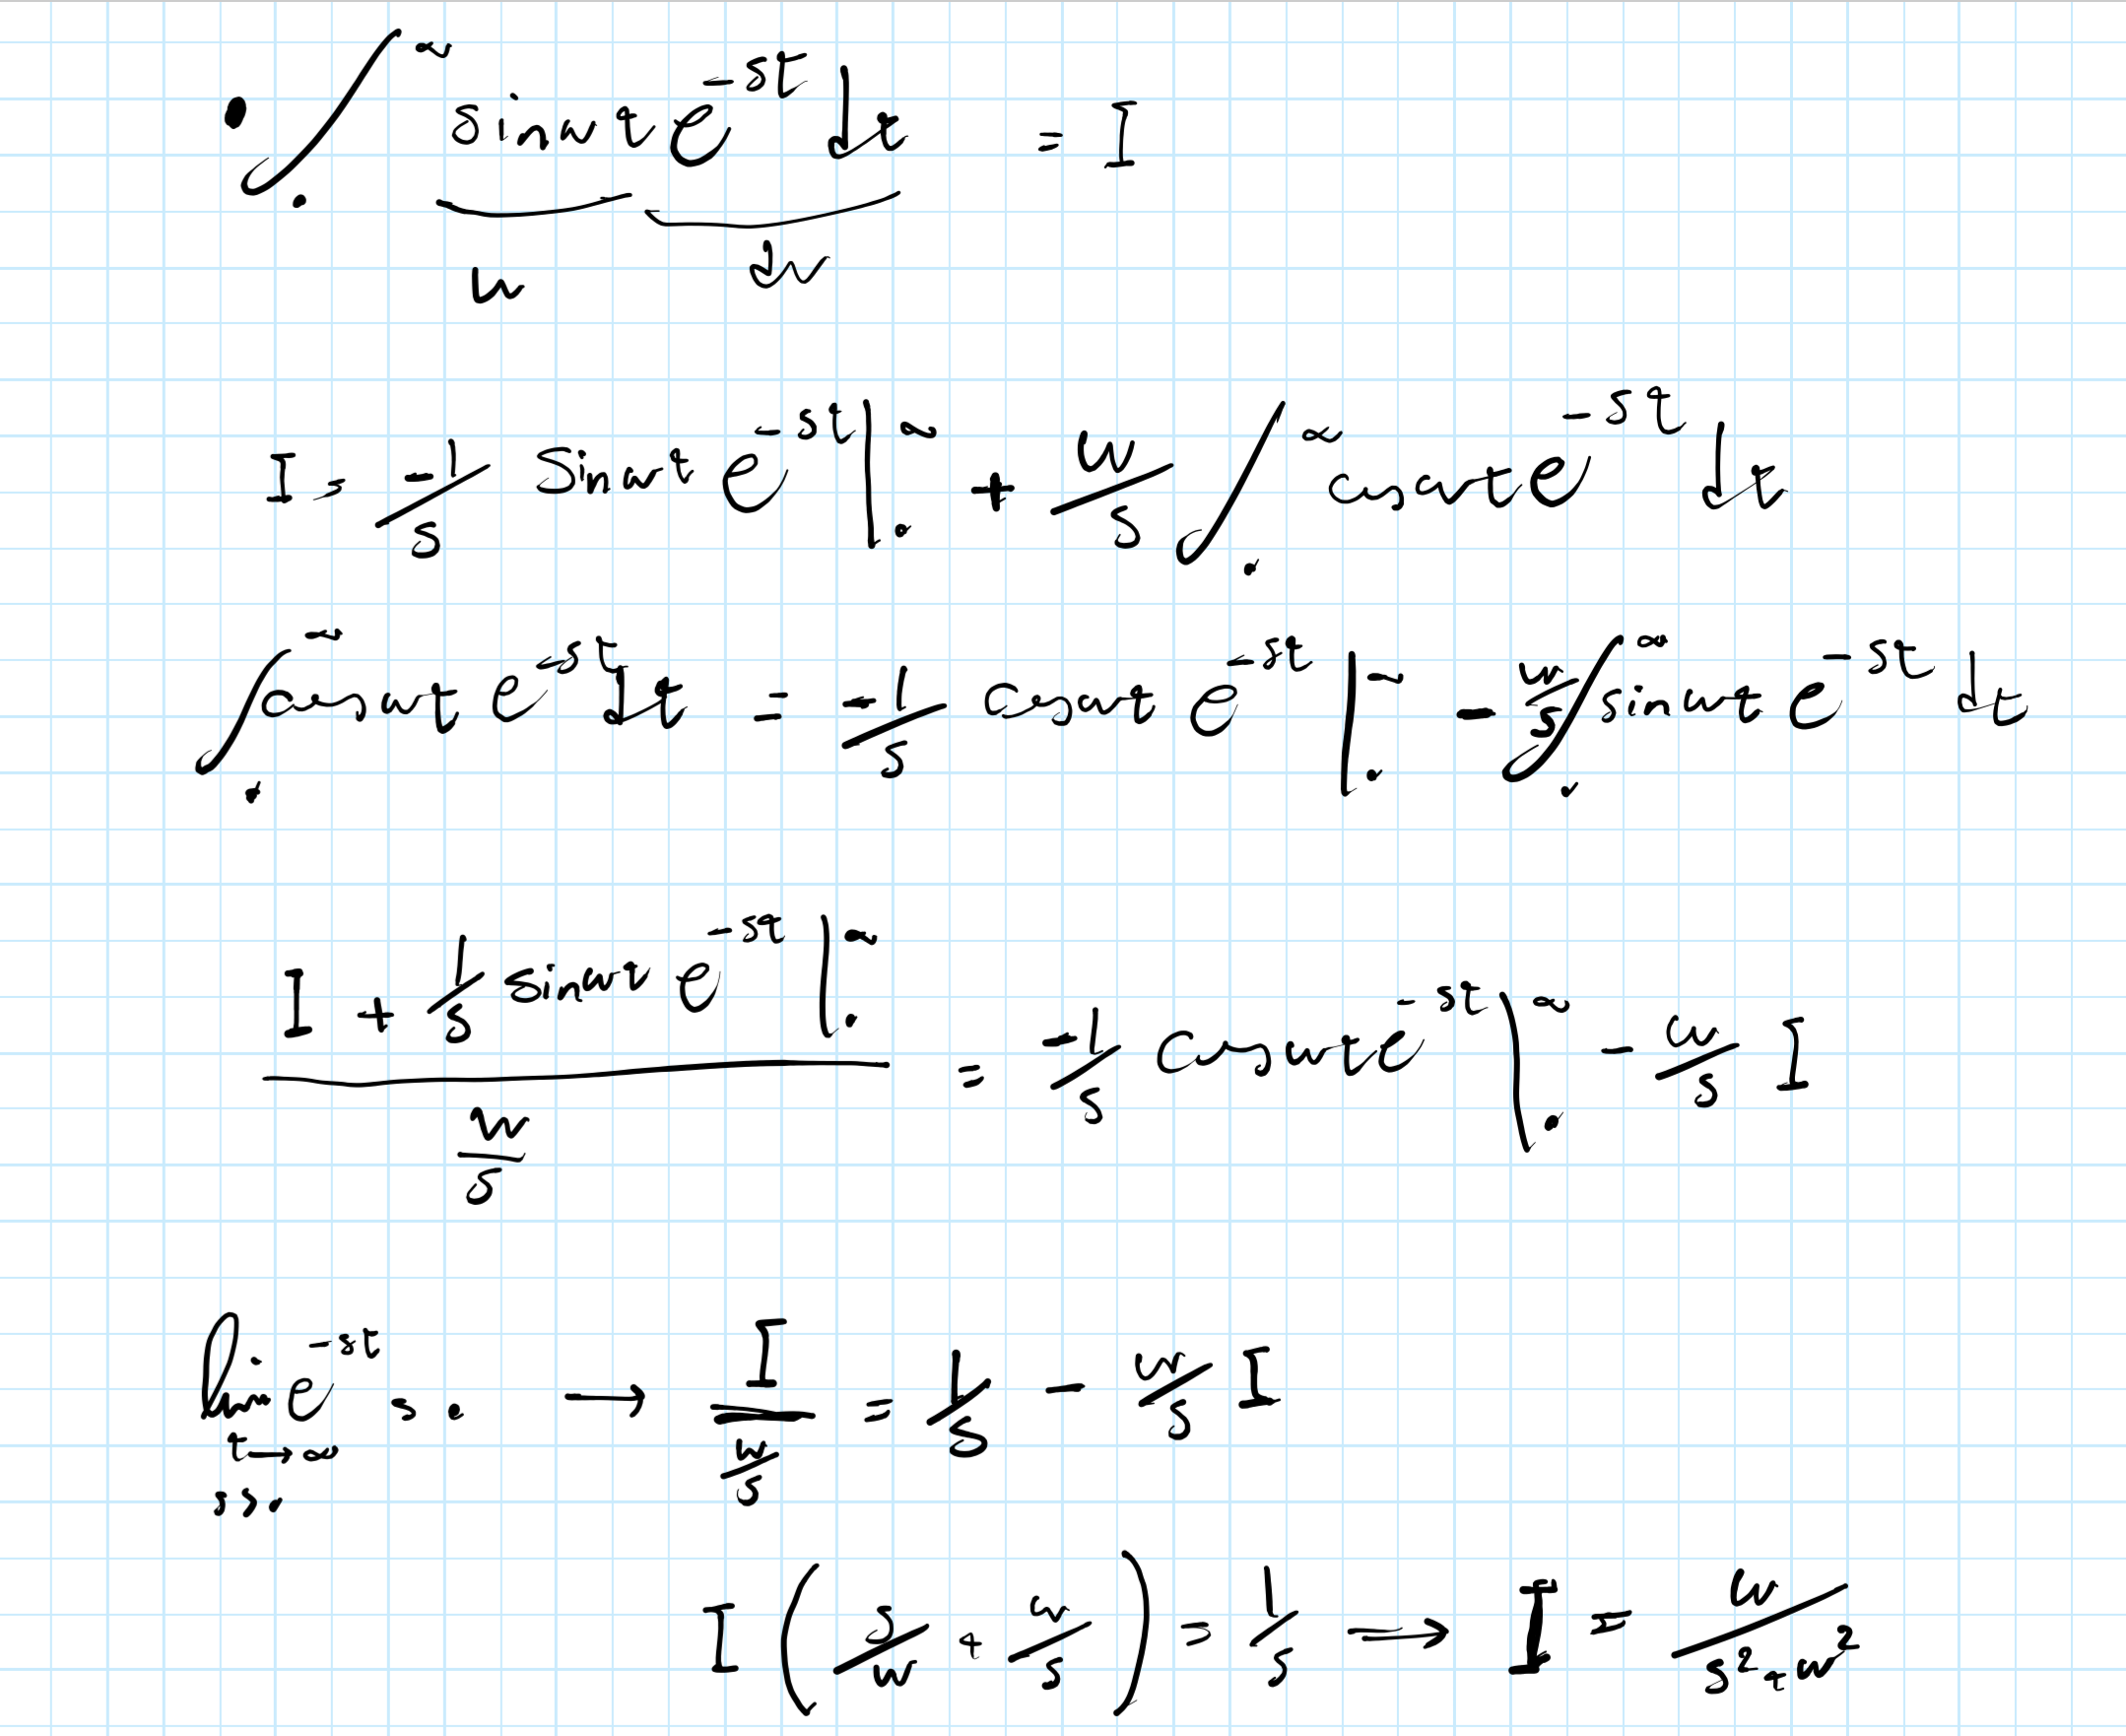 • ∫₀^∞ sinωt e^{-st} dt = I
u dv
I = -1/s sinωt e^{-st} |₀^∞ + ω/s ∫₀^∞ cosωt e^{-st} dt
∫₀^∞ cosωt e^{-st} dt = -1/s cosωt e^{-st} |₀^∞ - ω/s ∫₀^∞ sinωt e^{-st} dt
(I + 1/s sinωt e^{-st} |₀^∞) / (ω/s) = -1/s cosωt e^{-st} |₀^∞ - ω/s I
lim_{t→∞, s>0} e^{-st} = 0 → I / (ω/s) = 1/s - ω/s I
I (s/ω + ω/s) = 1/s ⟹ I = ω/(s² + ω²)